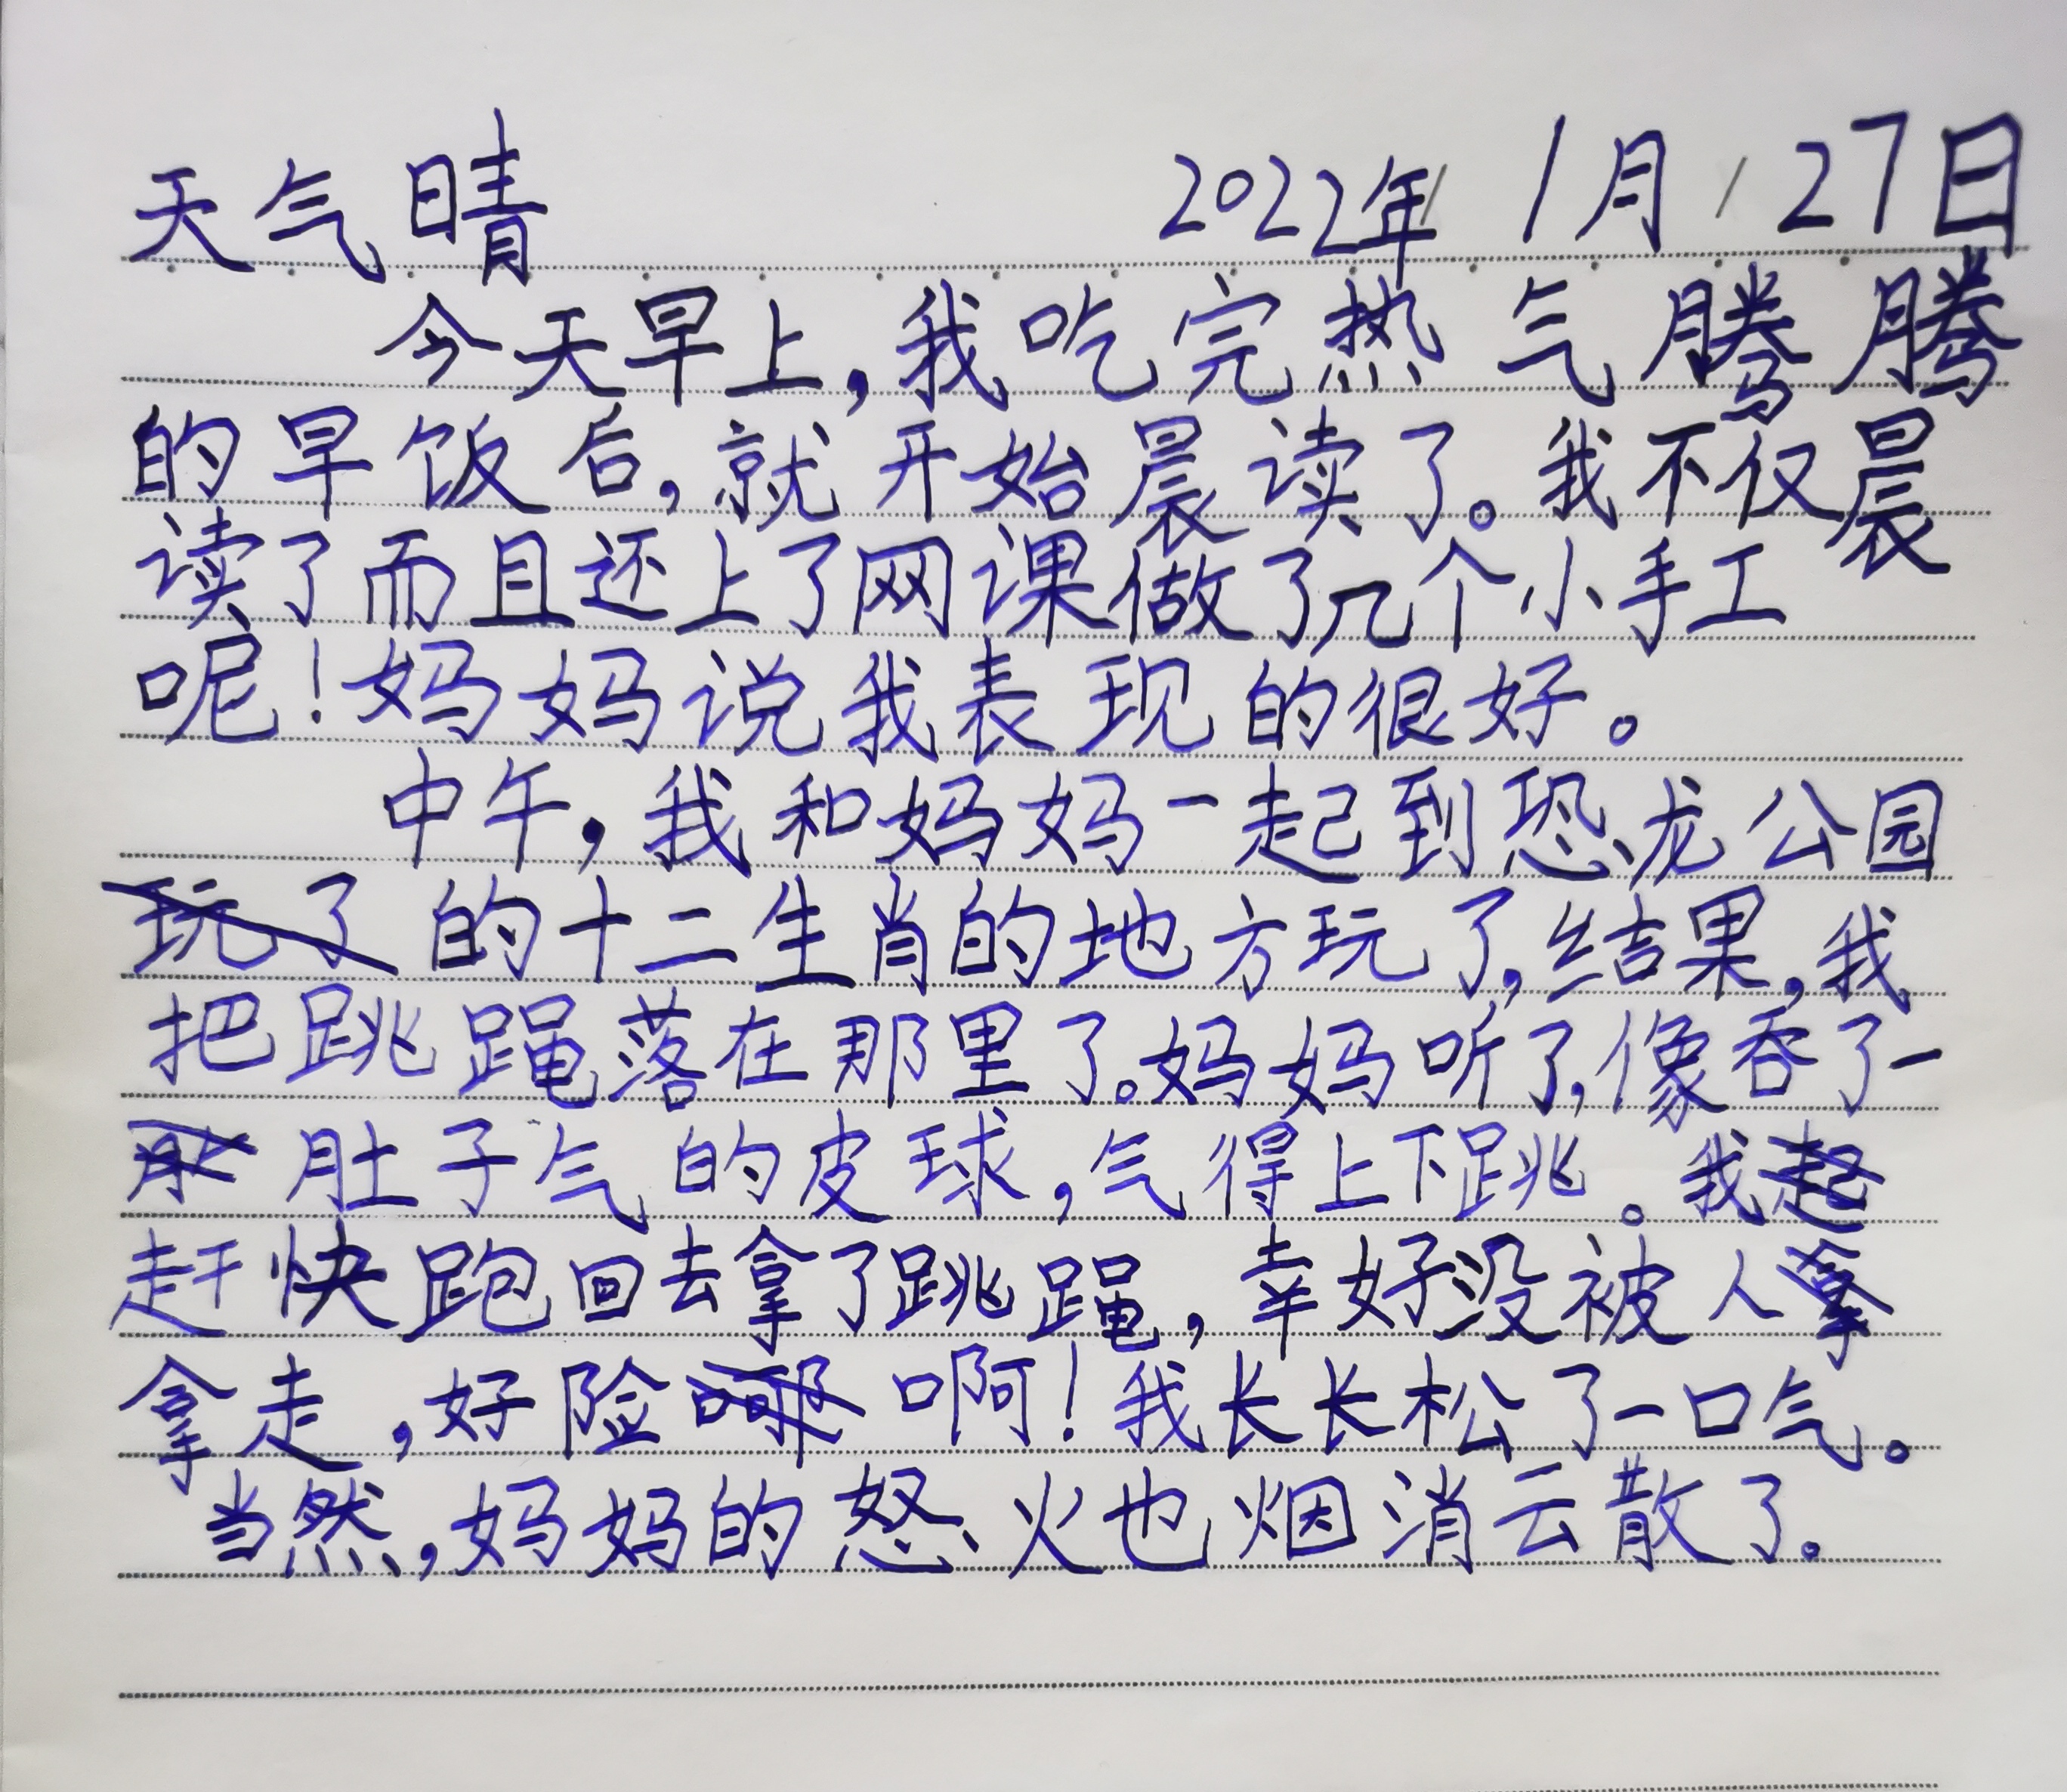 天气晴 2022年1月27日
今天早上,我吃完热气腾腾
的早饭后,就开始晨读了。我不仅晨
读了而且还上了网课做了几个小手工
呢!妈妈说我表现的很好。
中午,我和妈妈一起到恐龙公园
玩了的十二生肖的地方玩了,结果,我
把跳蝇落在那里了。妈妈听了,像吞了一
肚子气的皮球,气得上下跳。我起
赶快跑回去拿了跳蝇,幸好没被人拿
拿走,好险啊!我长长松了一口气。
当然,妈妈的怒火也烟消云散了。